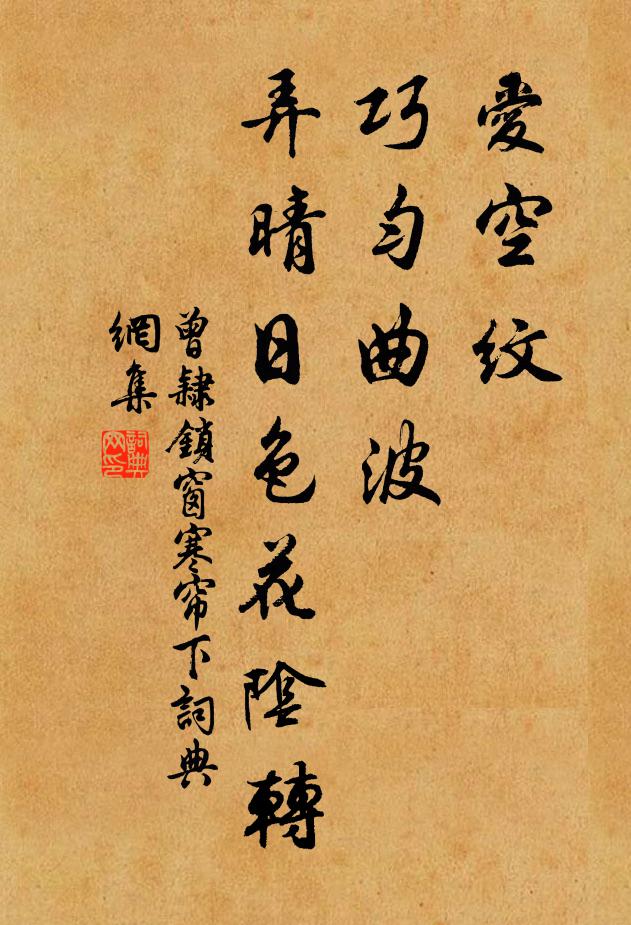 愛空紋
巧勻曲波
弄晴日色花陰轉
曾隸鎖窗寒帘下詞典
網集
詞典
网印